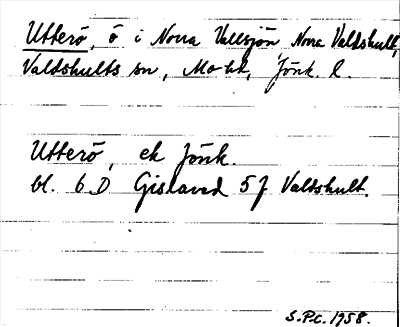 Utterö, ö i Norra Vallsjön Norra Valdshult,
Valdshults sn, Mo hd, Jönk. l.
Utterö, ek Jönk.
bl. 6 D Gislaved 5 f Valdshult.
S.P.C. 1958.